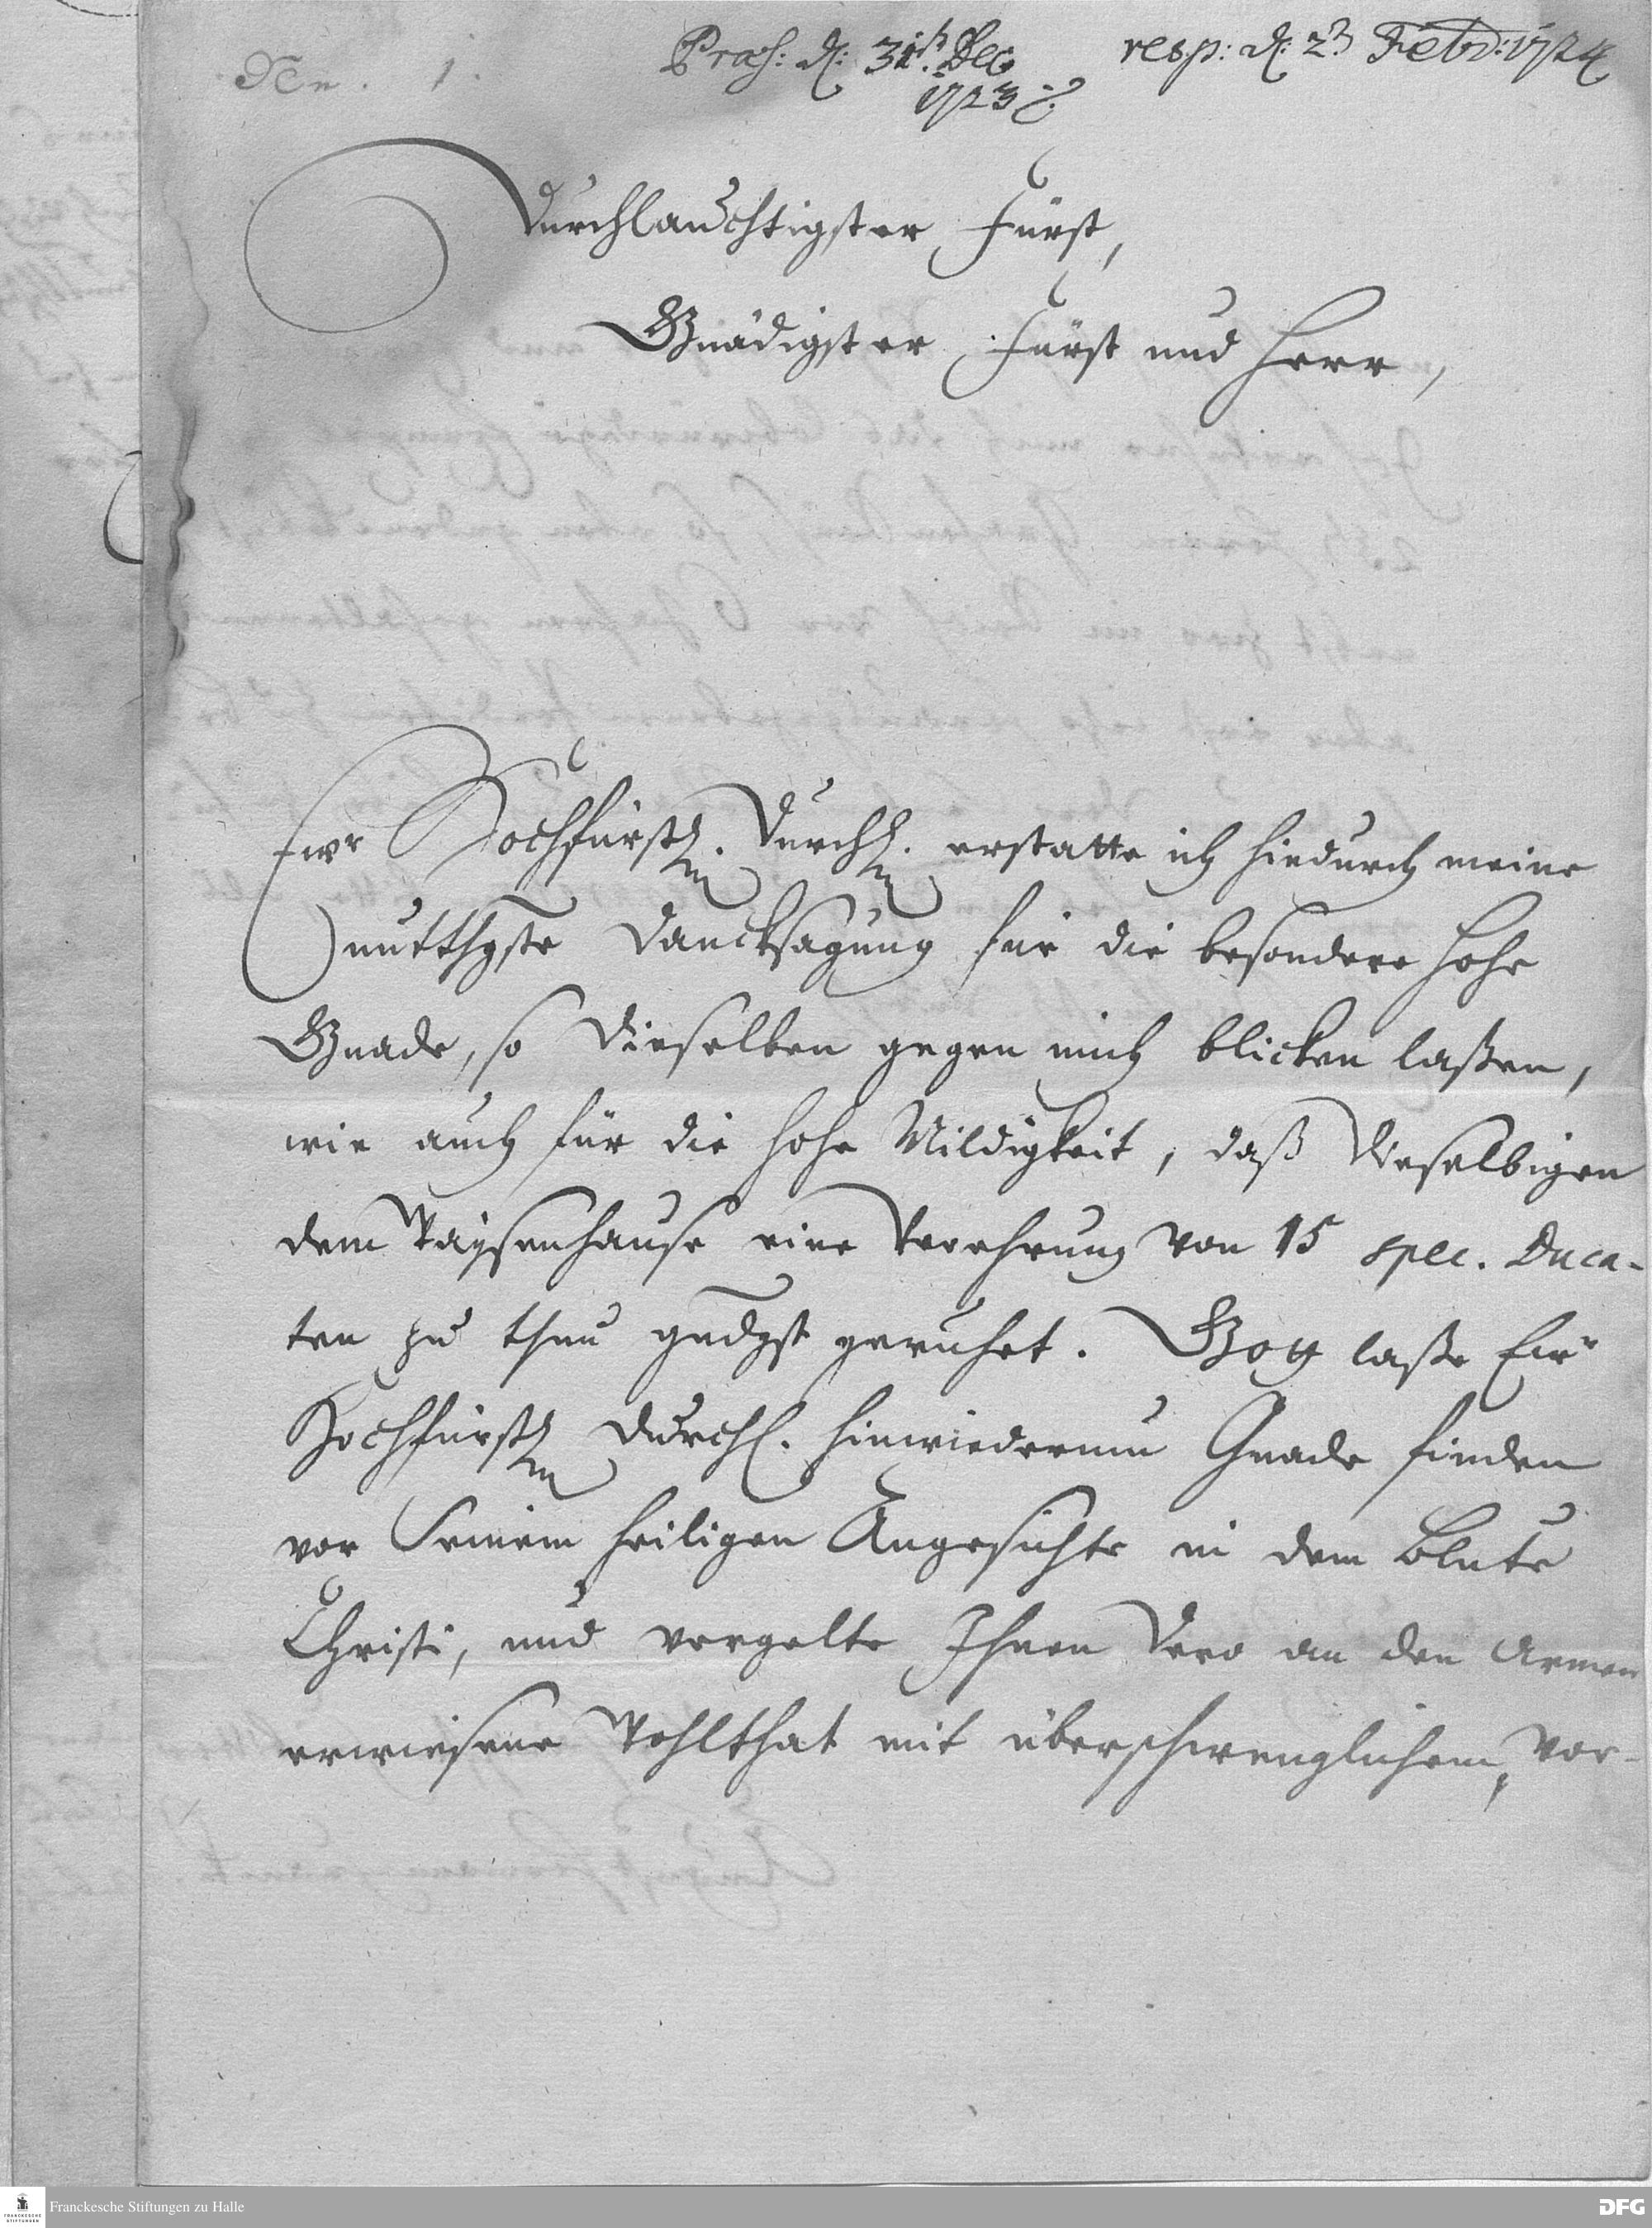 Num. 1.
Praes: d: 31st. Dec
1723
resp: d: 23 Febr: 1724
Durchlauchtigster Fürst,
Gnädigster Fürst und Herr,
Ewr Hochfürstl. Durchl. erstatte ich hiedurch meine
untthgste Dancksagung für die besondere hohe
Gnade, so Dieselben gegen mich blicken laßen,
wie auch für die hohe Mildigkeit, daß Dieselbigen
dem Waysenhause eine Verehrung von 15 spec. Duca-
ten zu thun gndgst geruhet. Gott laße Ewr
Hochfürstl Durchl. hinwiederum Gnade finden
vor Seinem heiligen Angesichte in dem Blute
Christi, und vergelte Ihnen Dero an den Armen
erwiesene Wohlthat mit überschwenglichem, ver-
Franckesche Stiftungen zu Halle
FRANCKESCHE
STIFTUNGEN
DFG